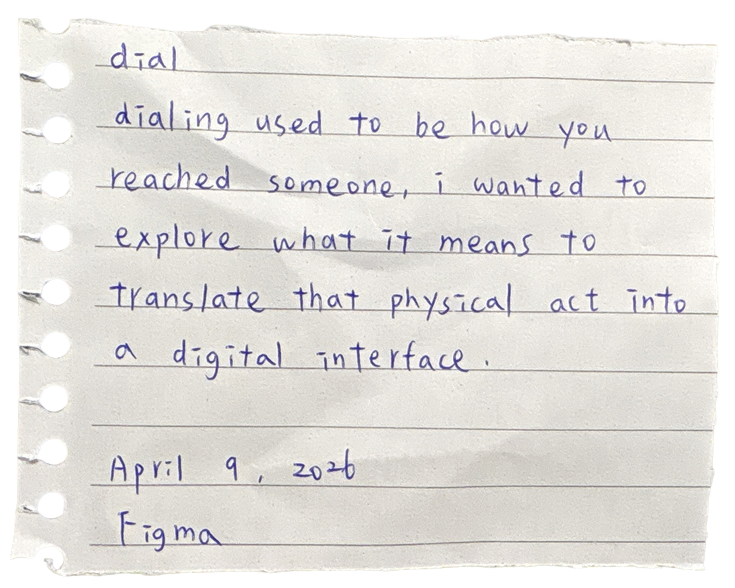 dial
dialing used to be how you
reached someone, i wanted to
explore what it means to
translate that physical act into
a digital interface.
April 9, 2026
Figma